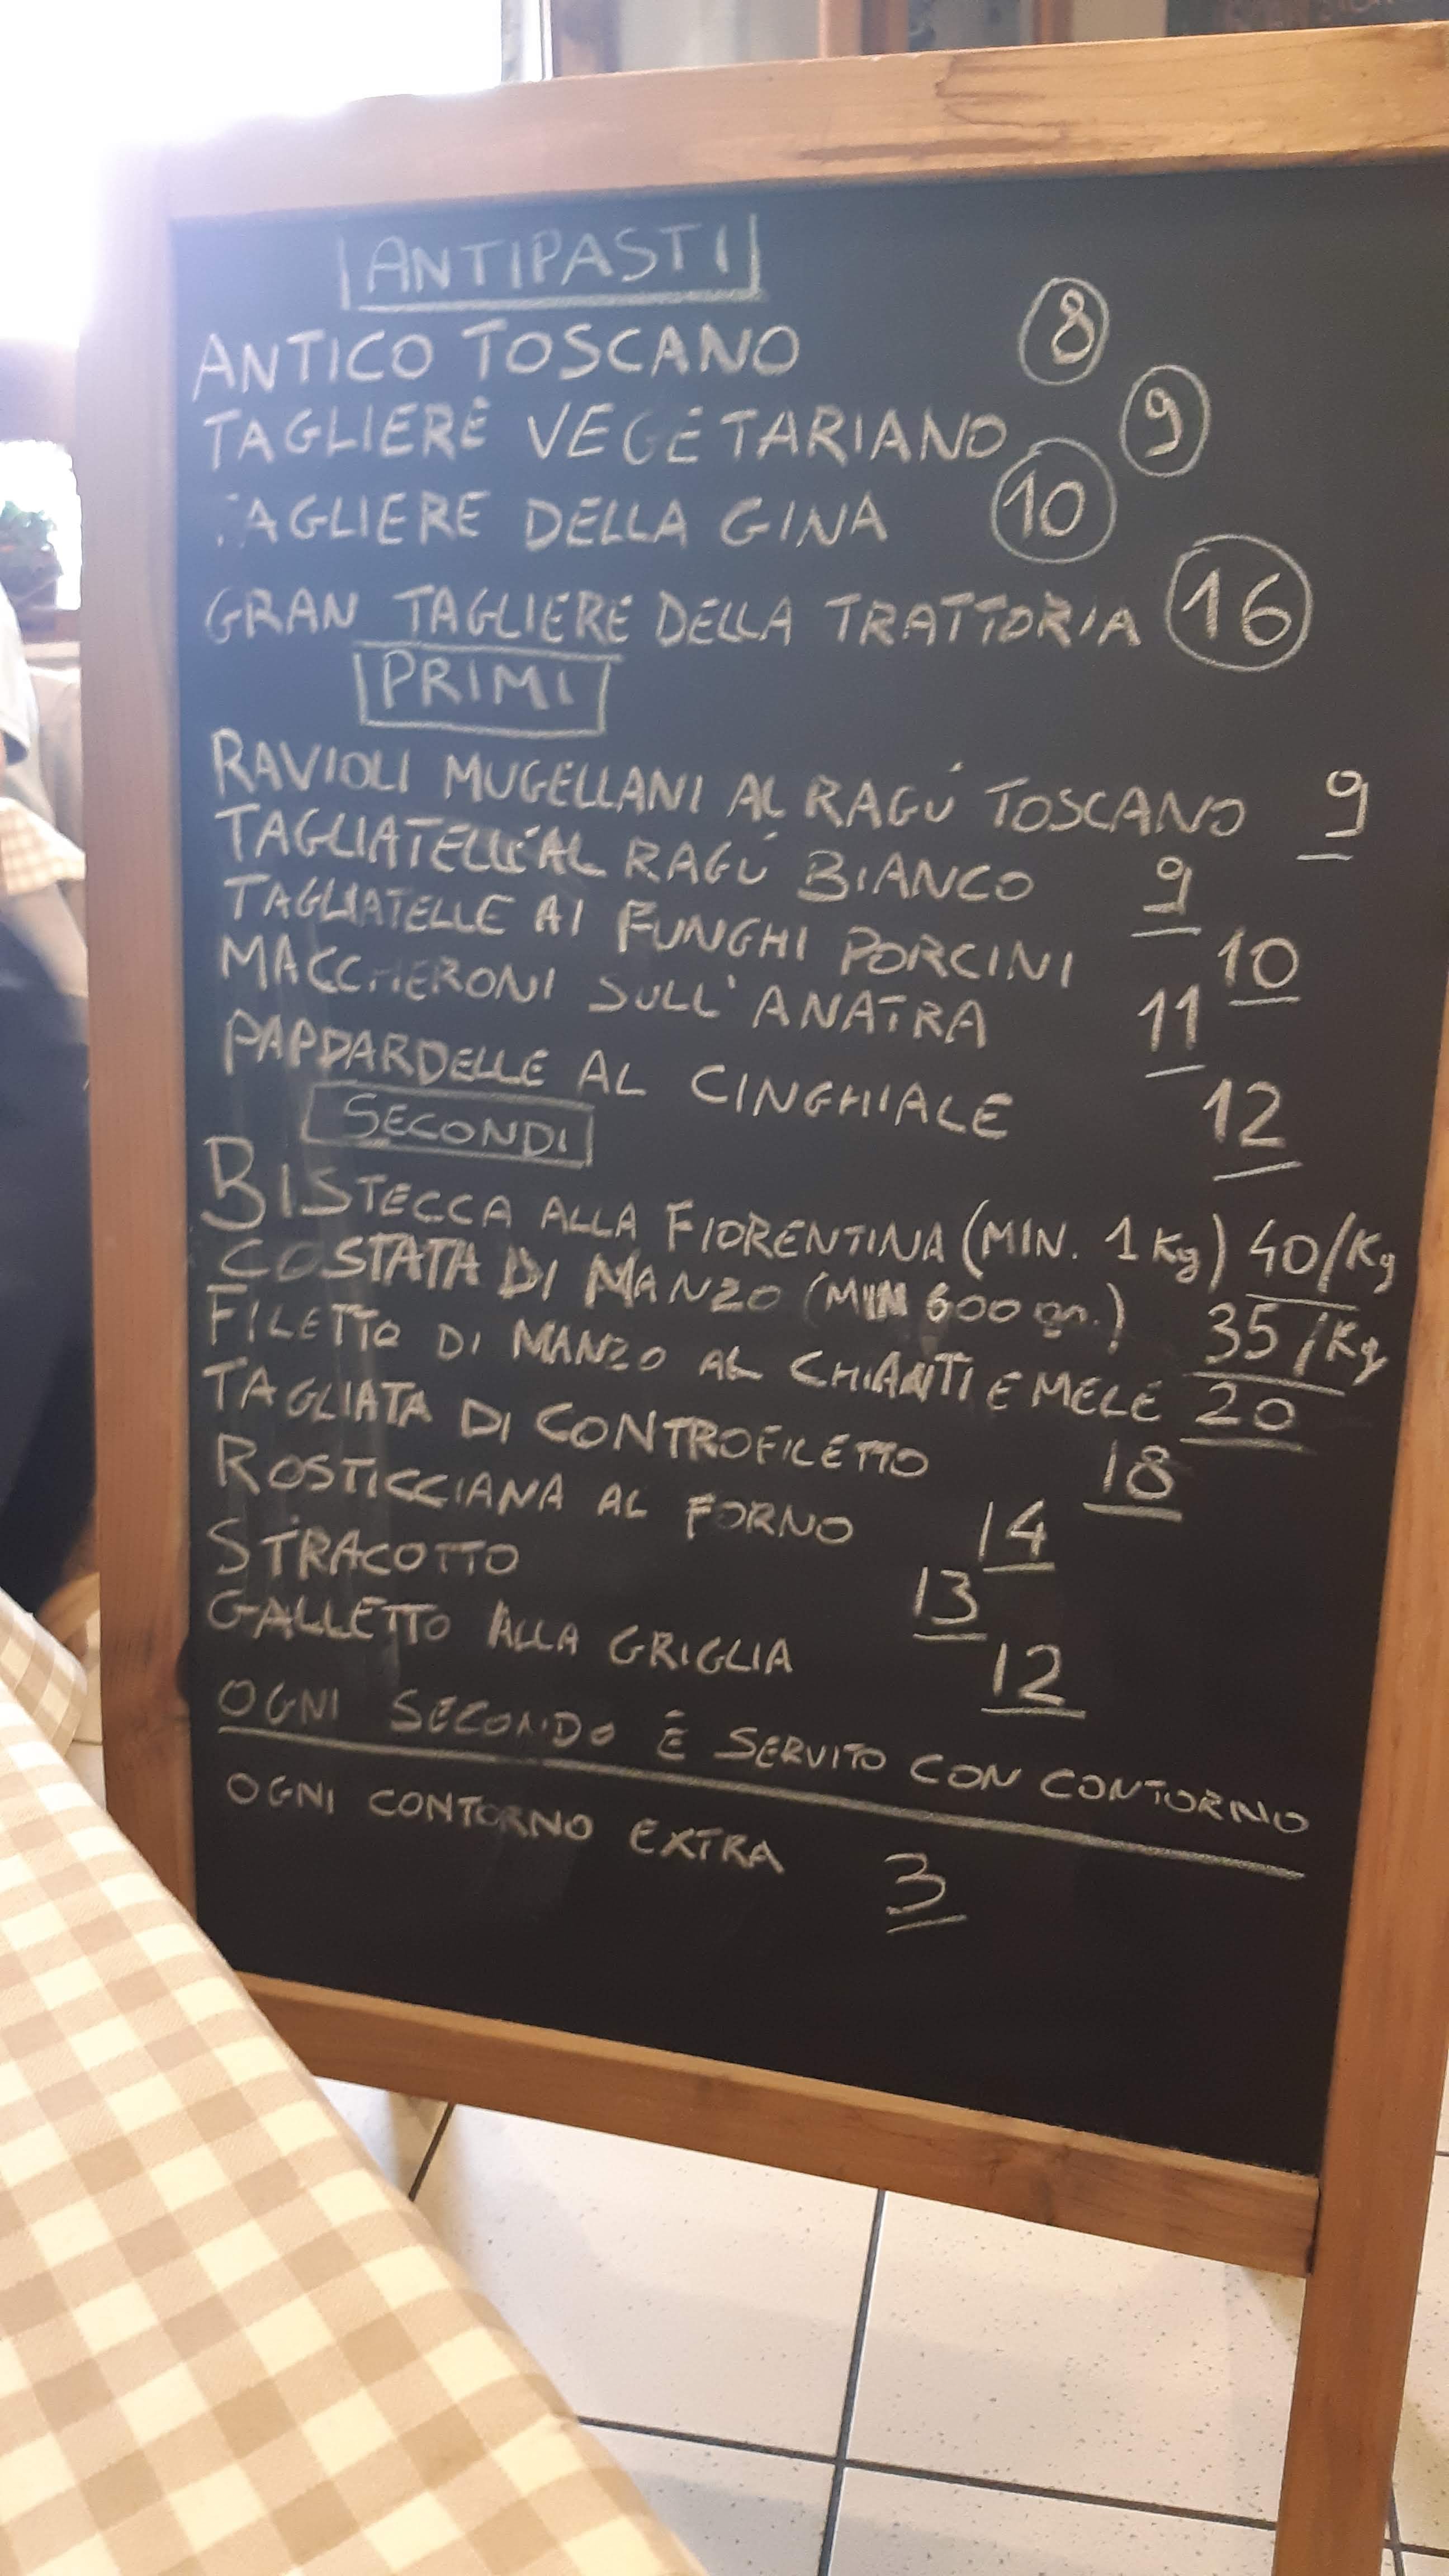 ANTIPASTI
ANTICO TOSCANO 8
TAGLIERE VEGETARIANO 9
TAGLIERE DELLA GINA 10
GRAN TAGLIERE DELLA TRATTORIA 16
PRIMI
RAVIOLI MUGELLANI AL RAGÚ TOSCANO 9
TAGLIATELLE AL RAGÚ BIANCO 9
TAGLIATELLE AI FUNGHI PORCINI 10
MACCHERONI SULL'ANATRA 11
PAPPARDELLE AL CINGHIALE 12
SECONDI
BISTECCA ALLA FIORENTINA (MIN. 1 Kg) 40/Kg
COSTATA DI MANZO (MIN 600 gr.) 35/Kg
FILETTO DI MANZO AL CHIANTI E MELE 20
TAGLIATA DI CONTROFILETTO 18
ROSTICCIANA AL FORNO 14
STRACOTTO 13
GALLETTO ALLA GRIGLIA 12
OGNI SECONDO É SERVITO CON CONTORNO
OGNI CONTORNO EXTRA 3